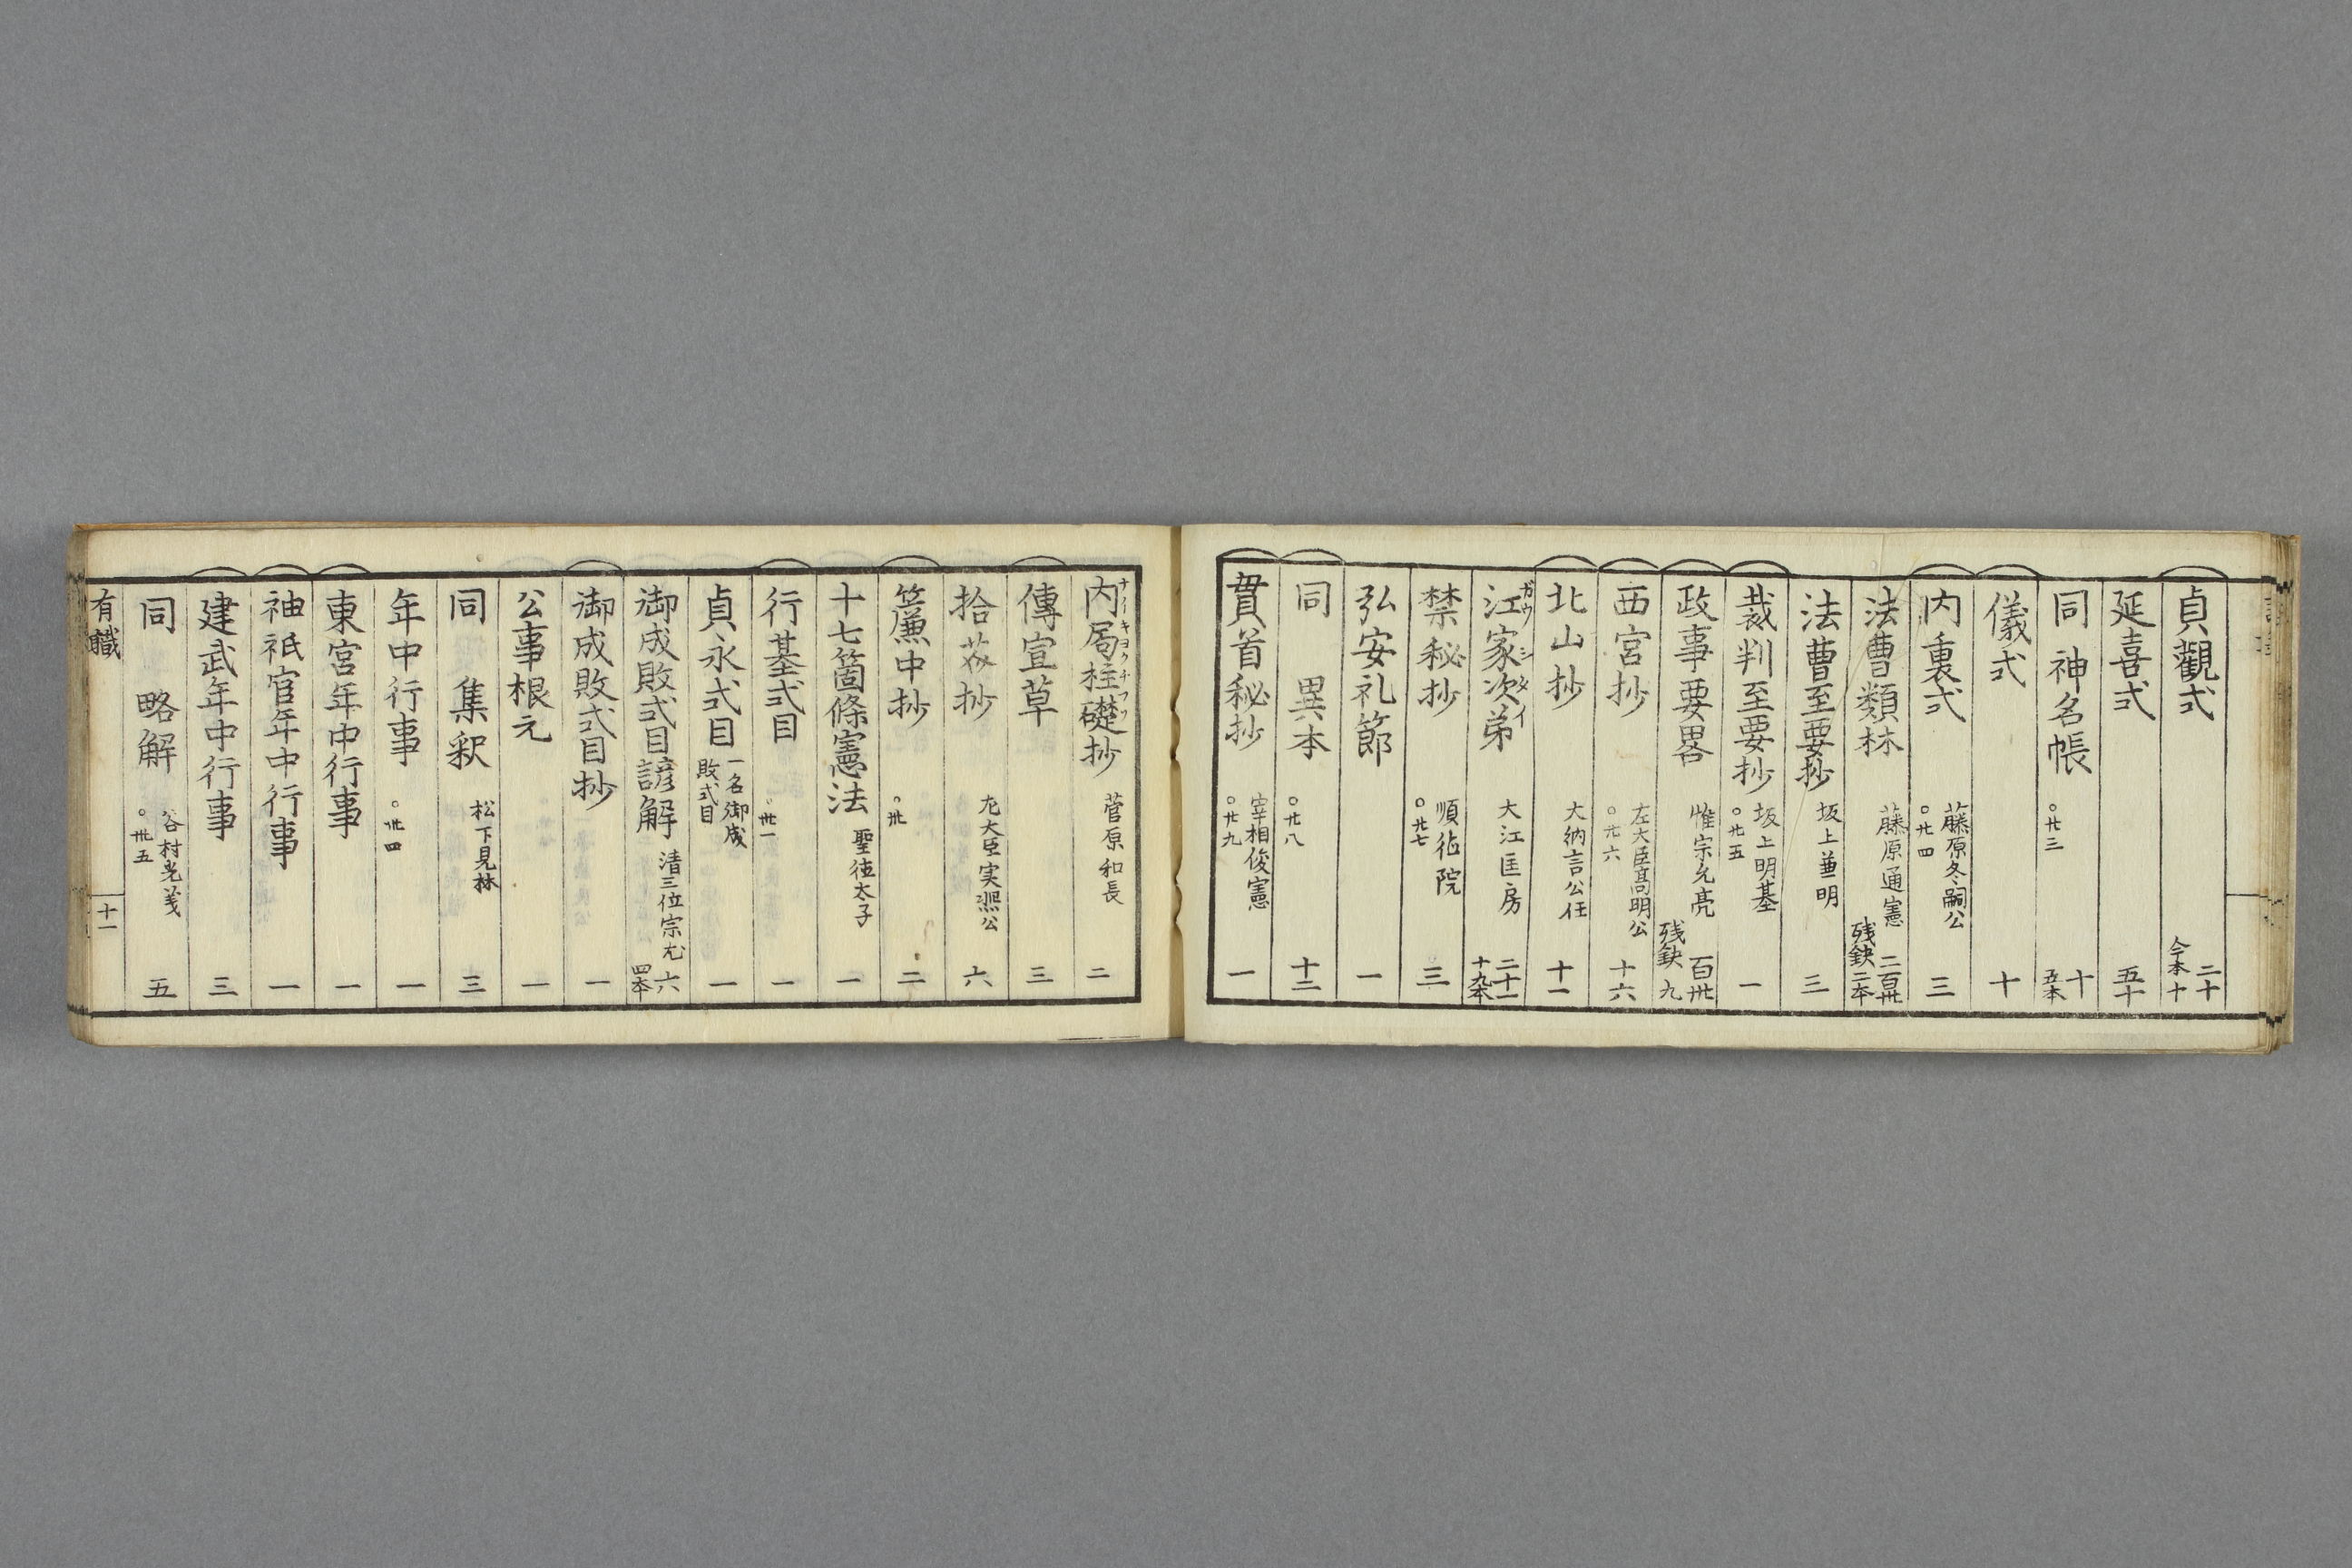 貞觀式 今本十 二十
延喜式 五十
同 神名帳 ○廾三 十 五本
儀式 十
内裏式 藤原冬嗣公 ○廾四 三
法曹類林 藤原通憲 残鈌 二百卅 二本
法曹至要抄 坂上兼明 三
裁判至要抄 坂上明基 ○廾五 一
政事要畧 惟宗允亮 残鈌 百卅 九
西宮抄 左大臣高明公 ○廾六 十六
北山抄 大納言公任 十一
江家次弟 ガウ シダイ 大江匡房 二十一 十九本
禁秘抄 順徳院 ○廾七 三
弘安礼節 一
同 異本 ○廾八 十二
貫首秘抄 宰相俊憲 ○廾九 一
内局柱礎抄 ナイキヨクチウソ 菅原和長 二
傳宣草 三
拾芥抄 左大臣実凞公 六
簾中抄 ○卅 二
十七箇條憲法 聖徳太子 一
行基式目 ○卅一 一
貞永式目 一名御成敗式目 一
御成敗式目諺解 清三位宗尤 六 四本
御成敗式目抄 一
公事根元 一
同 集釈 松下見林 三
年中行事 ○卅四 一
東宮年中行事 一
神祇官年中行事 一
建武年中行事 三
同 略解 谷村光義 ○卅五 五
有職 十一